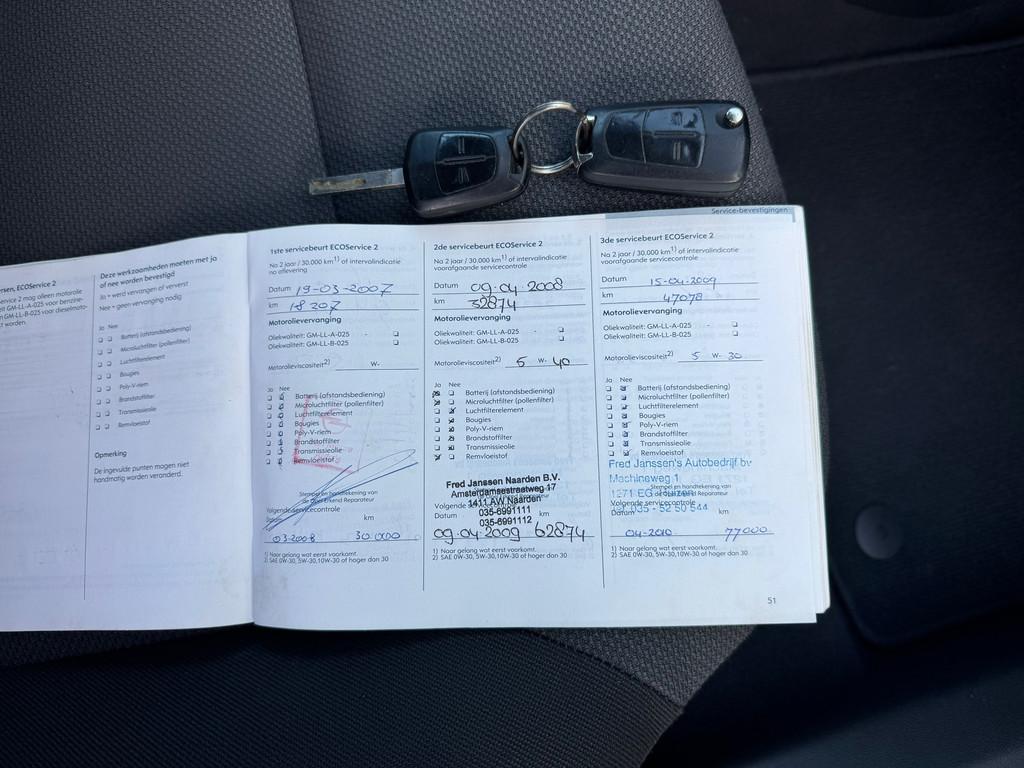 Service-bevestigingen
ersen, ECOService 2
ervice 2 mag alleen motorolie
it GM-LL-A-025 voor benzine-
GM-LL-B-025 voor dieselmoto-
t worden.
Deze werkzaamheden moeten met ja
of nee worden bevestigd
Ja = werd vervangen of ververst
Nee = geen vervanging nodig
Ja Nee
Batterij (afstandsbediening)
Microluchtfilter (pollenfilter)
Luchtfilterelement
Bougies
Poly-V-riem
Brandstoffilter
Transmissieolie
Remvloeistof
Opmerking
De ingevulde punten mogen niet
handmatig worden veranderd.
1ste servicebeurt ECOService 2
Na 2 jaar / 30.000 km1) of intervalindicatie
na aflevering
Datum 19-03-2007
km 18207
Motorolievervanging
Oliekwaliteit: GM-LL-A-025
Oliekwaliteit: GM-LL-B-025
Motorolieviscositeit2) W-
Ja Nee
Batterij (afstandsbediening)
Microluchtfilter (pollenfilter)
Luchtfilterelement
Bougies
Poly-V-riem
Brandstoffilter
Transmissieolie
Remvloeistof
Stempel en handtekening van
de Opel Erkend Reparateur
Volgende servicecontrole
Datum km
03-2008 30.000
1) Naar gelang wat eerst voorkomt.
2) SAE 0W-30, 5W-30,10W-30 of hoger dan 30
2de servicebeurt ECOService 2
Na 2 jaar / 30.000 km1) of intervalindicatie
voorafgaande servicecontrole
Datum 09-04-2008
km 32874
Motorolievervanging
Oliekwaliteit: GM-LL-A-025
Oliekwaliteit: GM-LL-B-025
Motorolieviscositeit2) 5 W- 40
Ja Nee
Batterij (afstandsbediening)
Microluchtfilter (pollenfilter)
Luchtfilterelement
Bougies
Poly-V-riem
Brandstoffilter
Transmissieolie
Remvloeistof
Fred Janssen Naarden B.V.
Amsterdamsestraatweg 17
1411 AW Naarden
Volgende
035-6991111
Datum km
035-6991112
09-04-2009 62874
1) Naar gelang wat eerst voorkomt.
2) SAE 0W-30, 5W-30,10W-30 of hoger dan 30
3de servicebeurt ECOService 2
Na 2 jaar / 30.000 km1) of intervalindicatie
voorafgaande servicecontrole
Datum 15-04-2009
km 47078
Motorolievervanging
Oliekwaliteit: GM-LL-A-025
Oliekwaliteit: GM-LL-B-025
Motorolieviscositeit2) 5 W- 30
Ja Nee
Batterij (afstandsbediening)
Microluchtfilter (pollenfilter)
Luchtfilterelement
Bougies
Poly-V-riem
Brandstoffilter
Transmissieolie
Remvloeistof
Fred Janssen's Autobedrijf bv
Machineweg 1
Stempel en handtekening van
1271 EG Huizen
Reparateur
Volgende servicecontrole
Tel. 035 - 52 50 544
Datum km
04-2010 77000
1) Naar gelang wat eerst voorkomt.
2) SAE 0W-30, 5W-30,10W-30 of hoger dan 30
51